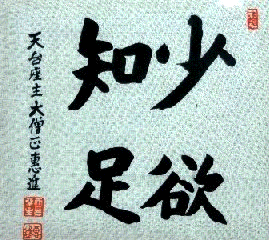 少欲
知足
天台座主大僧正惠諦